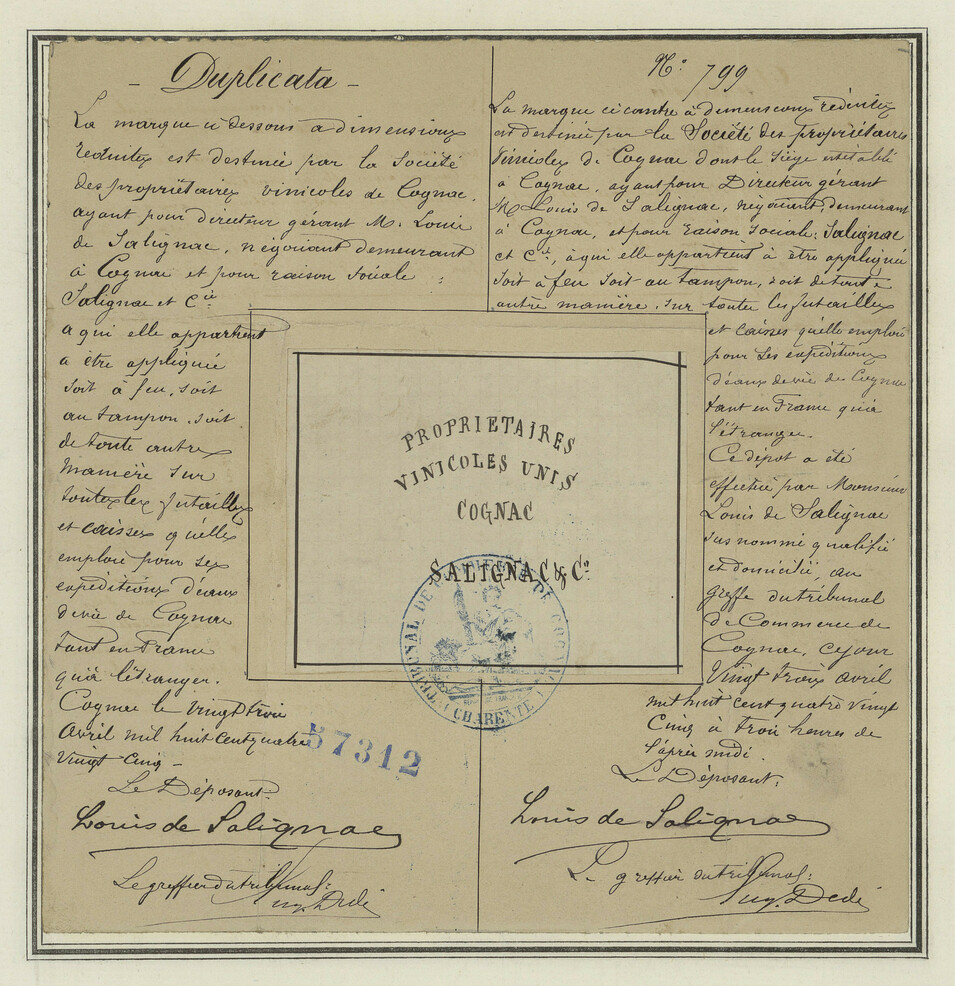 - Duplicata -
La marque ci dessous a dimensions
reduites est destinée par la Société
des propriétaires vinicoles de Cognac,
ayant pour directeur gérant M. Louis
de Salignac, négociant demeurant
à Cognac et pour raison sociale :
Salignac et Cie
a qui elle appartient
a être appliquée
soit à feu, soit
au tampon, soit
de toute autre
manière sur
toutes les futailles
et caisses qu'elle
emploie pour ses
expeditions d'eaux
de vie de Cognac
tant en France
qu'à l'étranger.
Cognac le vingt trois
avril mil huit cent quatre
vingt cinq -
Le Déposant
Louis de Salignac
Le greffier du tribunal:
Eug. Dedé
57312
No. 799
La marque ci contre à dimensions réduites
est destinée par la Société des propriétaires
Vinicoles de Cognac dont le siège est établi
à Cognac, ayant pour Directeur gérant
M. Louis de Salignac, négociant, demeurant
à Cognac, et pour raison sociale: Salignac
et Cie, à qui elle appartient à être appliquée
soit à feu soit au tampon, soit de toute
autre manière, sur toutes les futailles
et caisses qu'elle emploie
pour ses expeditions
d'eaux de vie de Cognac
tant en France qu'à
l'étranger.
Ce dépot a été
effectué par Monsieur
Louis de Salignac
sus nommé qualifié
et domicilié, au
greffe du tribunal
de Commerce de
Cognac, ce jour
Vingt trois avril
mil huit cent quatre vingt
Cinq à trois heures de
l'après midi.
Le Déposant:
Louis de Salignac
Le greffier du tribunal:
Eug. Dedé
PROPRIETAIRES
VINICOLES UNIS
COGNAC
SALIGNAC & Co.
TRIBUNAL DE COMMERCE DE COGNAC
(CHARENTE)